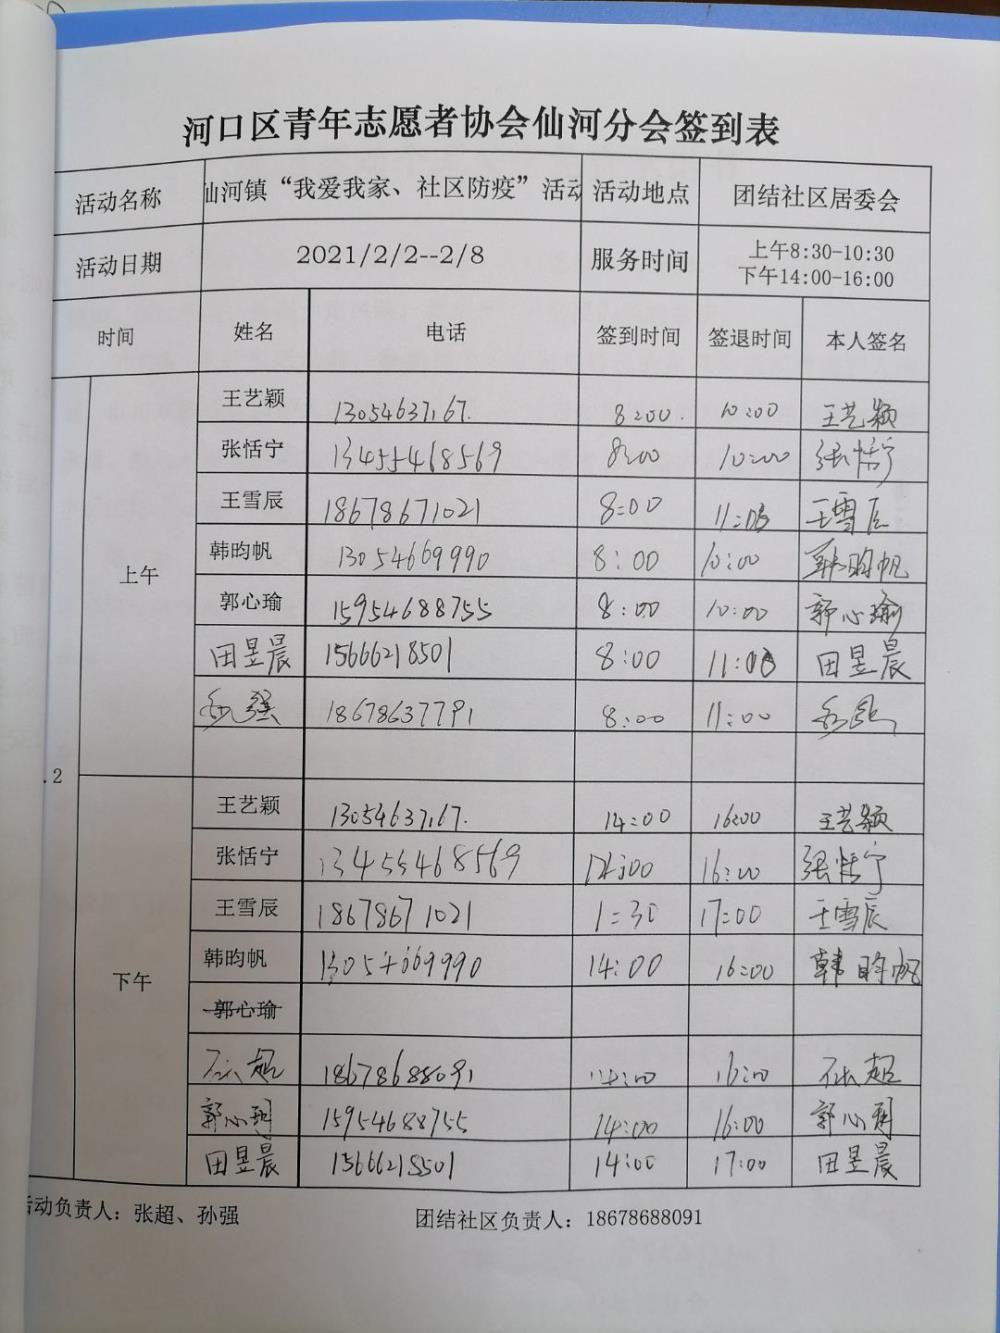 河口区青年志愿者协会仙河分会签到表
活动名称 仙河镇“我爱我家、社区防疫”活动 活动地点 团结社区居委会
活动日期 2021/2/2--2/8 服务时间 上午8:30-10:30
下午14:00-16:00
时间 姓名 电话 签到时间 签退时间 本人签名
上午
王艺颖 13054637167. 8:00. 10:00 王艺颖
张恬宁 13455468569 8:00 10:00 张恬宁
王雪辰 18678671021 8:00 11:00 王雪辰
韩昀帆 13054669990 8:00 10:00 韩昀帆
郭心瑜 15954688755 8:00 10:00 郭心瑜
田昱晨 15666218501 8:00 11:00 田昱晨
孙强 18678637791 8:00 11:00 孙强
.2
下午
王艺颖 13054637167. 14:00 16:00 王艺颖
张恬宁 13455468569 14:00 16:00 张恬宁
王雪辰 18678671021 1:30 17:00 王雪辰
韩昀帆 13054669990 14:00 16:00 韩昀帆
郭心瑜
张超 18678688091 14:00 16:00 张超
郭心玥 15954688755 14:00 16:00 郭心玥
田昱晨 15666218501 14:00 17:00 田昱晨
活动负责人：张超、孙强 团结社区负责人：18678688091